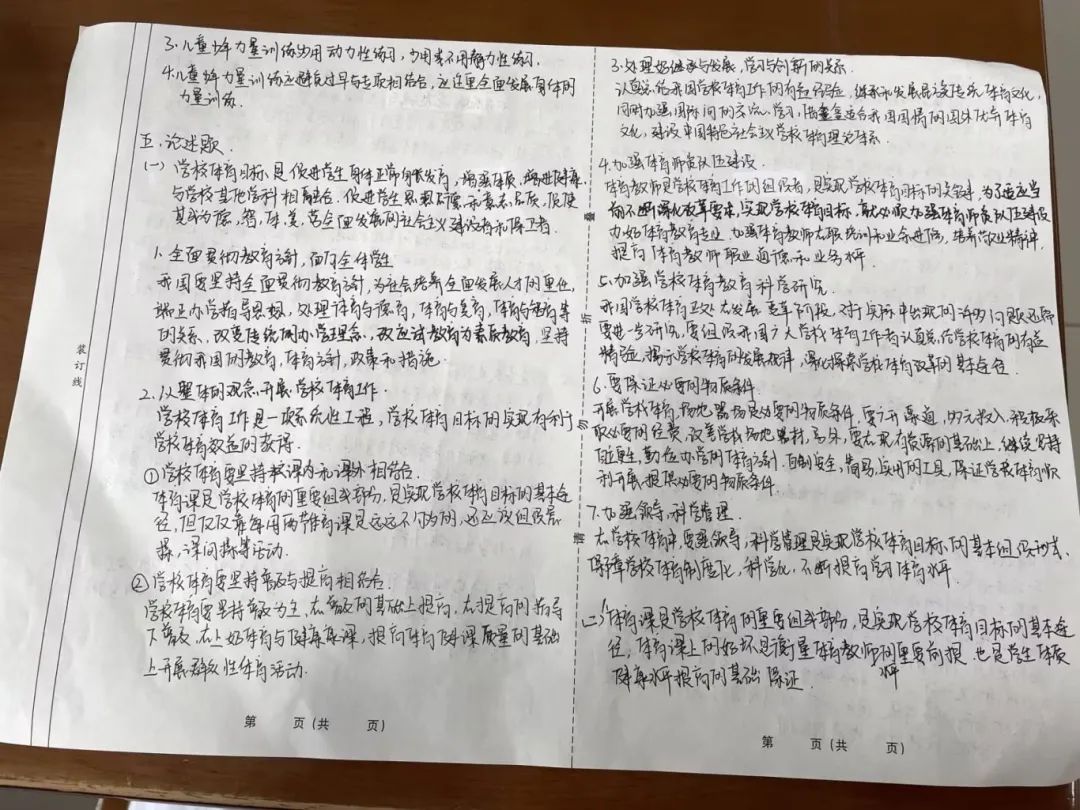 3.儿童少年力量训练多用动力性练习,少用或不用静力性练习.
4.儿童少年力量训练应避免过早与专项相结合,应注重全面发展身体的
力量训练.
五.论述题.
(一)学校体育目标是促进学生身体正常的发育,增强体质,增进健康
与学校其他学科相融合,促进学生思想品德、意志品质,促使
其成为德、智、体、美、劳全面发展的社会主义建设者和保卫者.
1.全面贯彻教育方针,面向全体学生
我国要坚持全面贯彻教育方针,为社会培养全面发展人才的重位,
端正办学指导思想,处理体育与德育,体育与美育,体育与智育等
的关系,改变传统的办学理念,改应试教育为素质教育,坚持
贯彻我国的教育,体育方针,政策和措施.
2.以整体的观念开展学校体育工作.
学校体育工作是一项系统性工程,学校体育目标的实现有利于
学校体育效益的获得.
①学校体育要坚持抓课内和课外相结合.
体育课是学校体育的重要组成部分,是实现学校体育目标的基本途
径,但仅仅靠每周两节体育课是远远不够的,还应该组织晨
操,课间操等活动.
②学校体育要坚持普及与提高相结合.
学校体育要坚持普及为主,在普及的基础上提高,在提高的指导
下普及,在上好体育与健康课,提高体育健课质量的基础
上开展群众性体育活动.
第 页(共 页)
装订线
整
折
勿
请
3.处理好继承与发展,学习与创新的关系.
认真总结我国学校体育工作的有益经验,继承和发展民族传统体育文化,
同时加强国际间的交流、学习,借鉴适合我国国情的国外优秀体育
文化,建设中国特色社会主义学校体育理论体系.
4.加强体育师资队伍建设.
体育教师是学校体育工作的组织者,是实现学校体育目标的关键,为了适应当
前不断深化改革要求,实现学校体育目标,就必须加强体育师资队伍建设
办好体育教育专业,加强体育教师在职培训和业余进修,培养敬业精神,
提高体育教师职业道德和业务水平.
5.加强学校体育教育科学研究.
我国学校体育正处在发展、变革阶段,对于实际中出现的许多问题还需
要进一步研究,要组织我国广大学校体育工作者认真总结学校体育的有益
经验,揭示学校体育的发展规律,深化探索学校体育改革的基本途径.
6.要保证必要的物质条件.
开展学校体育,场地器材是必要的物质条件,要广开幕道,的收入,积极采
取必要的经费,改善学校场地器材,另外,要在现有资源的基础上,继续坚持
自力更生,勤俭办学的体育方针,自制安全,简易,实用的工具,保证学校体育顺
利开展提供必要的物质条件.
7.加强领导,科学管理.
在学校体育中,要强领导,科学管理是实现学校体育目标的基本组织形式,
保障学校体育制度化,科学化,不断提高学习体育水平.
(二)体育课是学校体育的重要组成部分,是实现学校体育目标的基本途
径,体育课上的好坏是衡量体育教师的重要向损 水平 也是学生体质
健康水平提高的基础保证.
第 页(共 页)